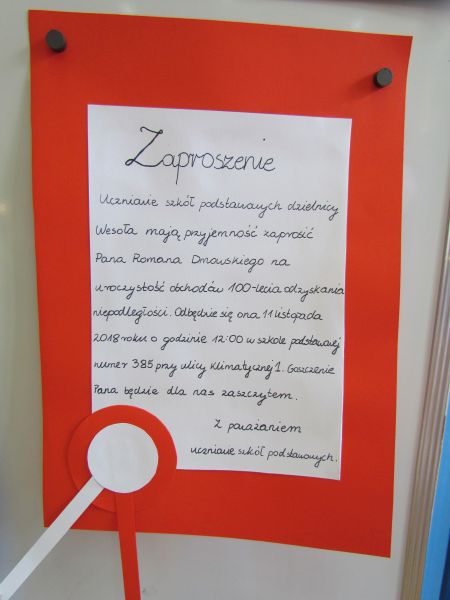 Zaproszenie
Uczniowie szkół podstawowych dzielnicy
Wesoła mają przyjemność zaprosić
Pana Romana Dmowskiego na
uroczystość obchodów 100-lecia odzyskania
niepodległości. Odbędzie się ona 11 listopada
2018 roku o godzinie 12:00 w szkole podstawowej
numer 385 przy ulicy Klimatycznej 1. Goszczenie
Pana będzie dla nas zaszczytem.
Z poważaniem
uczniowie szkół podstawowych.